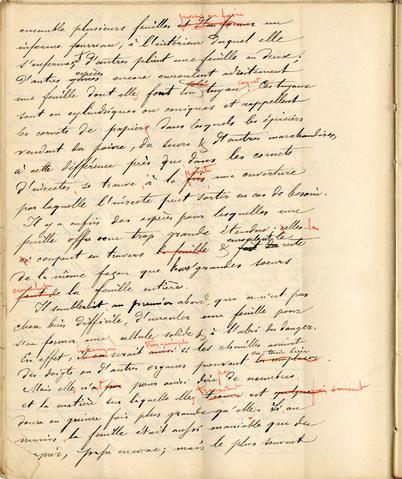 pour en faire
ensemble plusieurs feuilles et d'en former un
informe fourreau, à l'intérieur duquel elle
s'enferme; d'autres plient une feuille en deux;
D'autres espèces encore enroulent adroitement
une feuille dont elles font un tuyau. Ces tuyaux
sont ou cylindriques ou coniques et rappellent
les cornets de papier dans lesquels les épiciers
vendent du poivre, du sucre & d'autres marchandises,
à cette différence près que dans les cornets
d'insectes, se trouve à la pointe une ouverture
par laquelle l'insecte peut sortir en cas de besoin.
Il y a enfin des espèces pour lesquelles une
feuille offre une trop grande étendue; elles la
coupent en travers la feuille & enroulent le reste
de la même façon que leurs grandes sœurs
font de la feuille entière.
Il semblerait au premier abord que ce n'est pas
chose bien difficile, d'enrouler une feuille pour
s'en former une cellule solide & à l'abri du danger.
En effet, serait ainsi si les chenilles avaient
des doigts ou d'autres organes pouvant
Mais elle n'a pour ainsi dire de membres
et la matière sur laquelle elle travaille est souvent
douze ou quinze fois plus grande qu'elle. Si au
moins la feuille était aussi maniable que du
papier, passe encore; mais le plus souvent